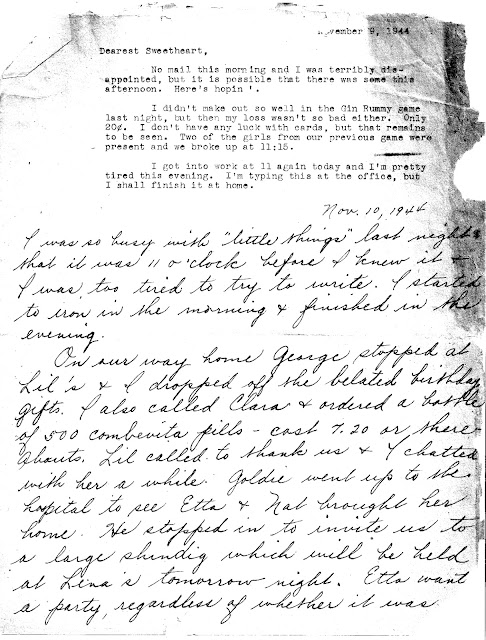 November 9, 1944
Dearest Sweetheart,
No mail this morning and I was terribly dis-
appointed, but it is possible that there was some this
afternoon. Here's hopin'.
I didn't make out so well in the Gin Rummy game
last night, but then my loss wasn't so bad either. Only
20¢. I don't have any luck with cards, but that remains
to be seen. Two of the girls from our previous game were
present and we broke up at 11:15.
I got into work at 11 again today and I'm pretty
tired this evening. I'm typing this at the office, but
I shall finish it at home.
Nov. 10, 1944
I was so busy with "little things" last night
that it was 11 o'clock before I knew it &
I was too tired to try to write. I started
to iron in the morning & finished in the
evening.
On our way home George stopped at
Lil's & I dropped off the belated birthday
gifts. I also called Clara & ordered a bottle
of 500 combevita pills - cost 7.20 or there
abouts. Lil called to thank us & I chatted
with her a while. Goldie went up to the
hospital to see Etta & Nat brought her
home. He stopped in to invite us to
a large shindig which will be held
at Lena's tomorrow night. Etta want
a party, regardless of whether it was